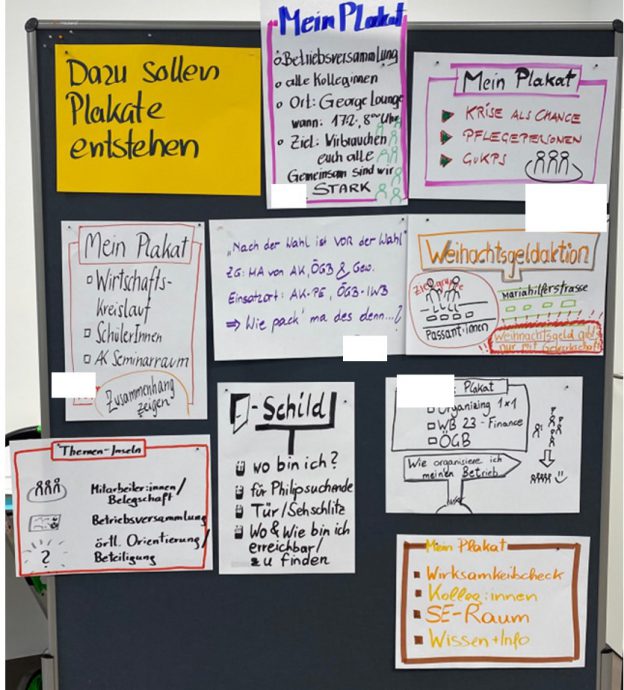 Dazu sollen
Plakate
entstehen
Mein Plakat
Betriebsversammlung
alle Kolleginnen
Ort: George Lounge
wann: 17.2., 8⁰⁰ Uhr
Ziel: Wirbrauchen
euch alle
Gemeinsam sind wir
STARK
Mein Plakat
KRISE ALS CHANCE
PFLEGEPERSONEN
GuKPS
Mein Plakat
Wirtschafts-
kreislauf
SchülerInnen
AK Seminarraum
Zusammenhang
zeigen
„Nach der Wahl ist VOR der Wahl"
ZG: MA von AK, ÖGB & Gew.
Einsatzort: AK-PE, ÖGB-IWB
⇒ Wie pack' ma des denn...?
Weihnachtsgeldaktion
Zielgruppe
Passant·innen
Mariahilferstrasse
Weihnachtsgeld gibt's
nur mit Gewerkschaft
Themen-Inseln
Mitarbeiter:innen/
Belegschaft
Betriebsversammlung
örtl. Orientierung/
Beteiligung
?
-Schild
wo bin ich?
für Philipsuchende
Tür/Sehschlitz
Wo & Wie bin ich
erreichbar/
zu finden
Plakat
Organizing 1x1
WB 23 - Finance
ÖGB
Wie organisiere ich
meinen Betrieb
Mein Plakat
Wirksamkeitscheck
Kolleg:innen
SE-Raum
Wissen+Info